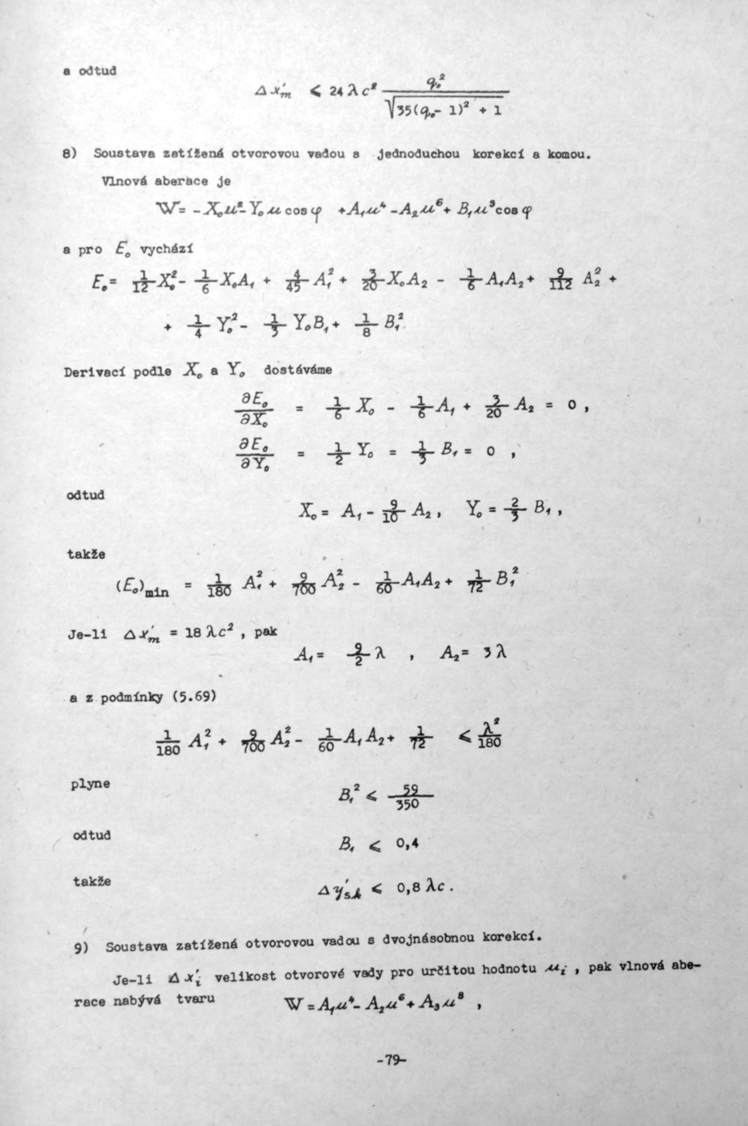 a odtud
Δx′ₘ ⩽ 24 λc² q₀² / √(35(q₀- 1)² + 1)
8) Soustava zatížená otvorovou vadou s jednoduchou korekcí a komou.
Vlnová aberace je
W= -X₀u²- Y₀u cos φ +A₁u⁴ -A₂u⁶+ B₁u³cos φ
a pro E₀ vychází
E₀= 1/12 X₀²- 1/6 X₀A₁ + 4/45 A₁² + 3/20 X₀A₂ - 1/6 A₁A₂+ 9/112 A₂² +
+ 1/4 Y₀²- 1/3 Y₀B₁+ 1/8 B₁²
Derivací podle X₀ a Y₀ dostáváme
∂E₀/∂X₀ = 1/6 X₀ - 1/6 A₁ + 3/20 A₂ = 0 ,
∂E₀/∂Y₀ = 1/2 Y₀ = 1/3 B₁ = 0 ,
odtud
X₀= A₁- 9/10 A₂, Y₀= 2/3 B₁,
takže
(E₀)min = 1/180 A₁² + 9/700 A₂² - 1/60 A₁A₂+ 1/72 B₁²
Je-li Δx′ₘ = 18 λc² , pak
A₁= 9/2 λ , A₂= 3 λ
a z podmínky (5.69)
1/180 A₁² + 9/700 A₂²- 1/60 A₁A₂+ 1/72 ⩽ λ²/180
plyne
B₁² ⩽ 59/350
odtud
B₁ ⩽ 0,4
takže
Δy′s.k ⩽ 0,8 λc.
9) Soustava zatížená otvorovou vadou s dvojnásobnou korekcí.
Je-li Δx′ᵢ velikost otvorové vady pro určitou hodnotu uᵢ , pak vlnová abe-
race nabývá tvaru W=A₁u⁴- A₂u⁶+A₃u⁸ ,
-79-